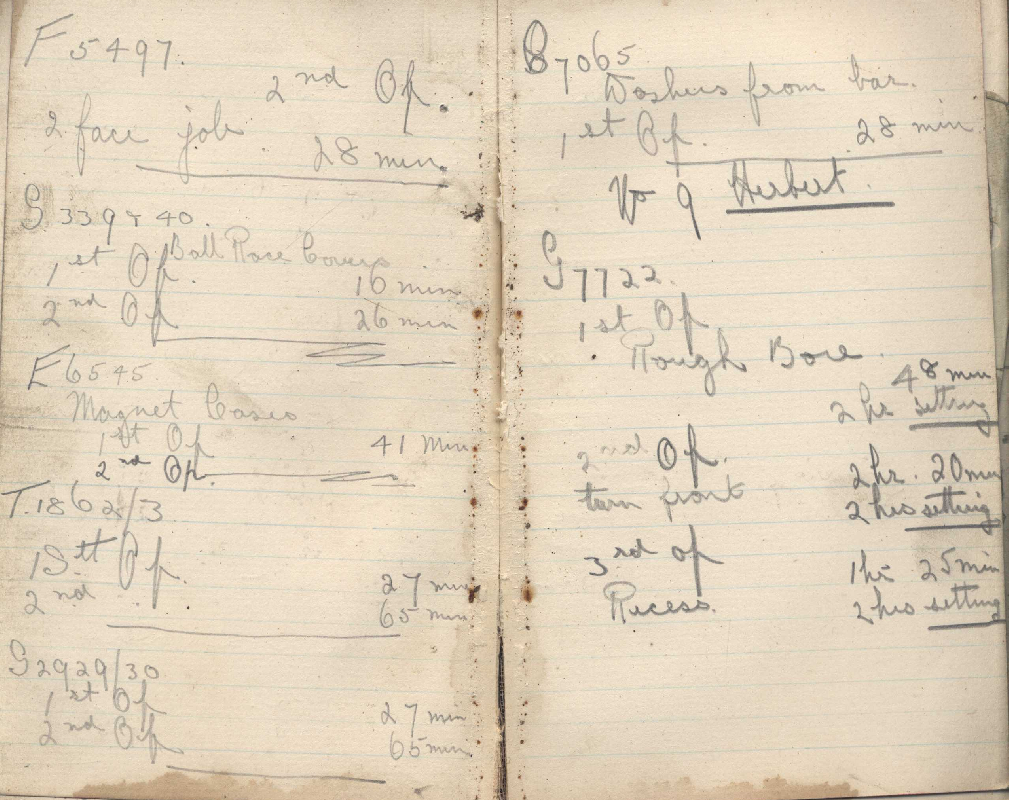 F 5497.
2nd Op.
2 face job
28 min.
G 339 & 40.
Ball Race Covers
1st Op. 16 min
2nd Op 26 min
E 6545
Magnet Cases
1st Op 41 Min
2nd Op.
T. 1862/3
1st Op. 27 min
2nd 65 min
G 2929/30
1st Op 27 min
2nd Op 65 min
B 7065
Washers from bar.
1st Op. 28 min
No 9 Herbert.
G 7722.
1st Op
Rough Bore
48 min
2 hr setting
2nd Op. 2 hr. 20 min
turn front 2 hrs setting
3rd op 1 hr 25 min
Recess. 2 hrs setting